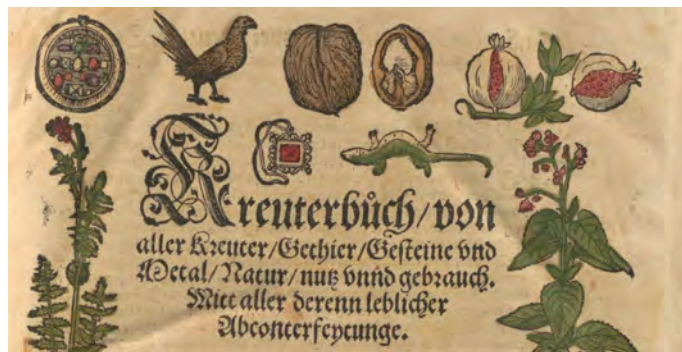 Kreuterbůch/ von
aller Kreuter/Gethier/Gesteine vnd
Metal/ Natur/ nutz vnnd gebrauch.
Mitt aller derenn leblicher
Abconterfeytunge.